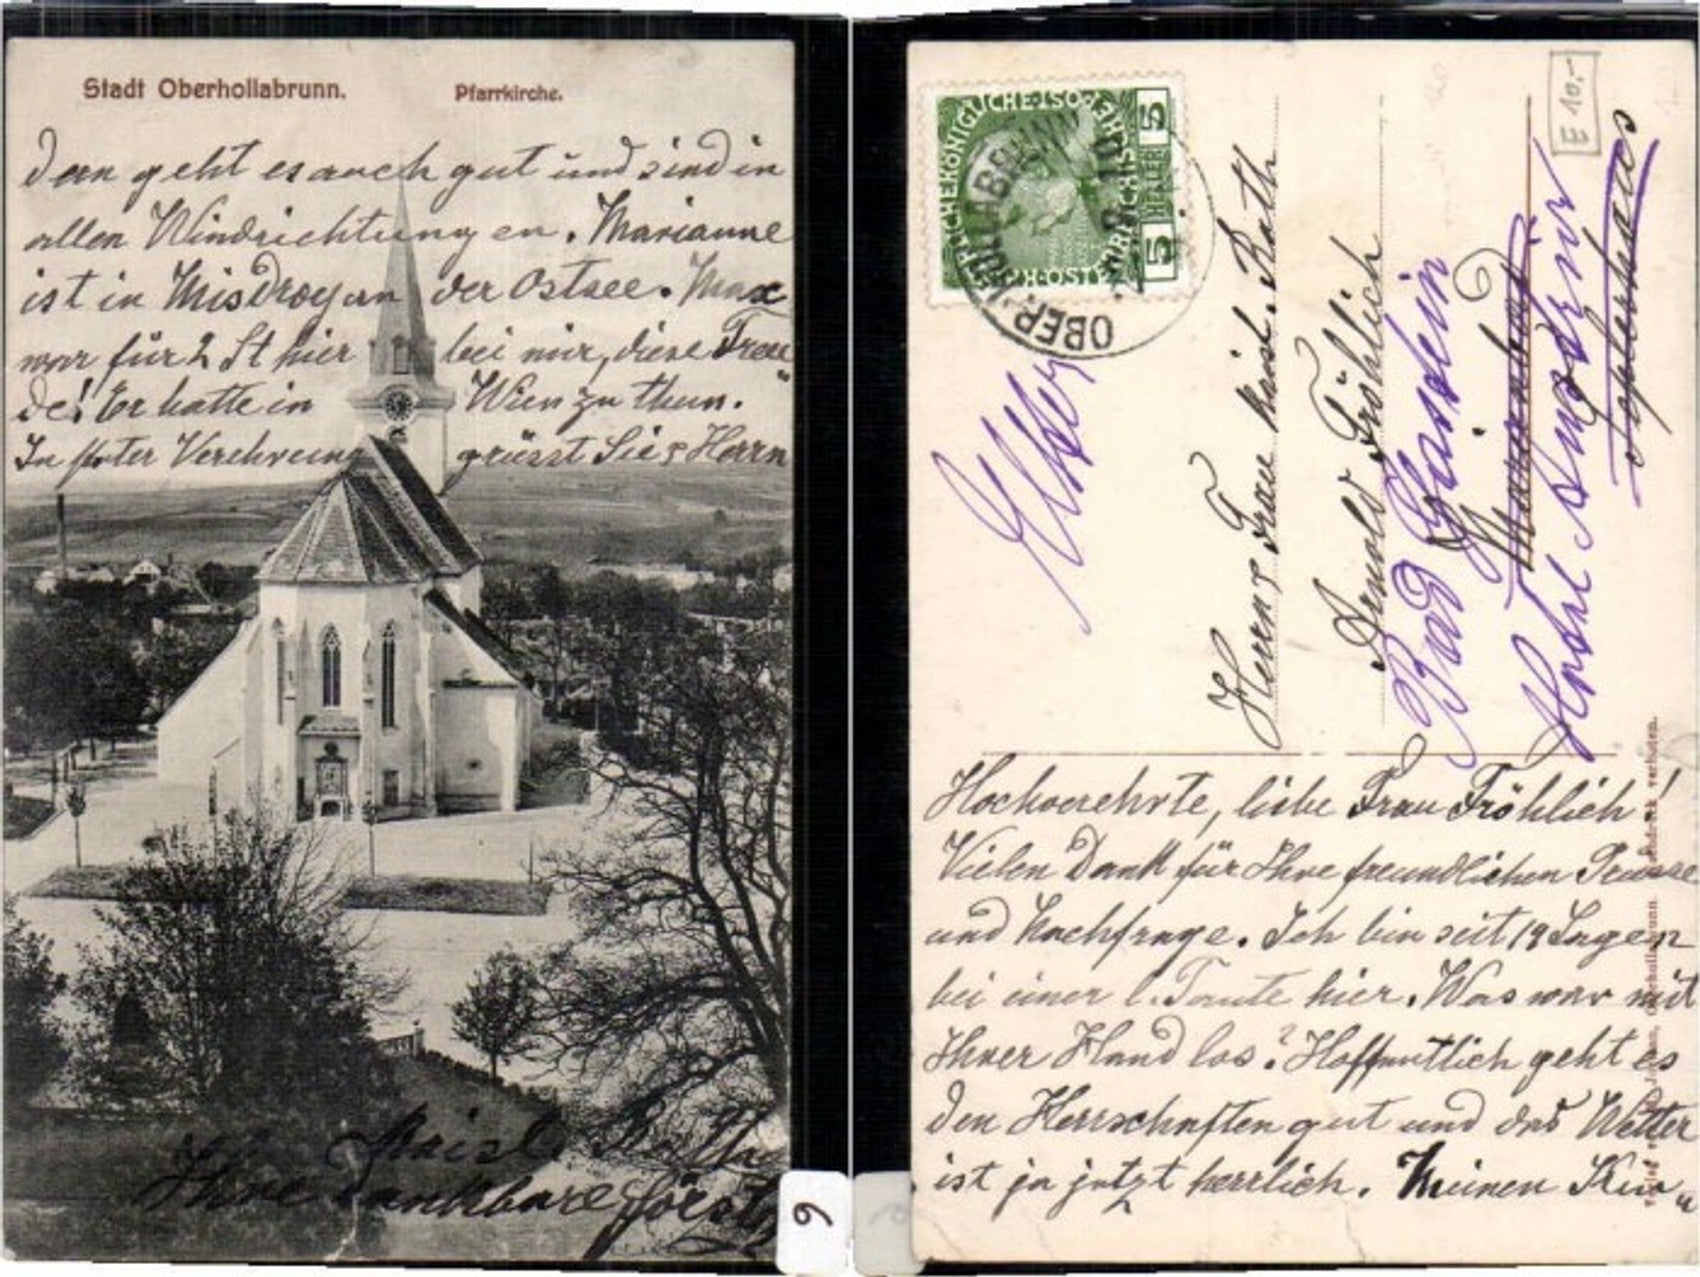 Stadt Oberhollabrunn. Pfarrkirche.
dern geht es auch gut und sind in
allen Windrichtungen. Marianne
ist in Misdroy an der Ostsee. Max
war für 2 St hier bei mir, diese Freu
de! Er hatte in Wien zu thun.
In Verehrung grüsst Sie & Herrn
Ihre dankbare
9
5 5
HELER
OBERHOLLABRUNN
E 10.-
Herrn & Frau kais. Rath
Arnold Fröhlich
Bad Gastein
Hotel
Hochverehrte, liebe Frau Fröhlich!
Vielen Dank für Ihre freundlichen Grüsse
und Nachfrage. Ich bin seit 19 Tagen
bei einer l. Tante hier. Was war mit
Ihrer Hand los? Hoffentlich geht es
den Herrschaften gut und das Wetter
ist ja jetzt herrlich. Meinen Kin"
verboten.